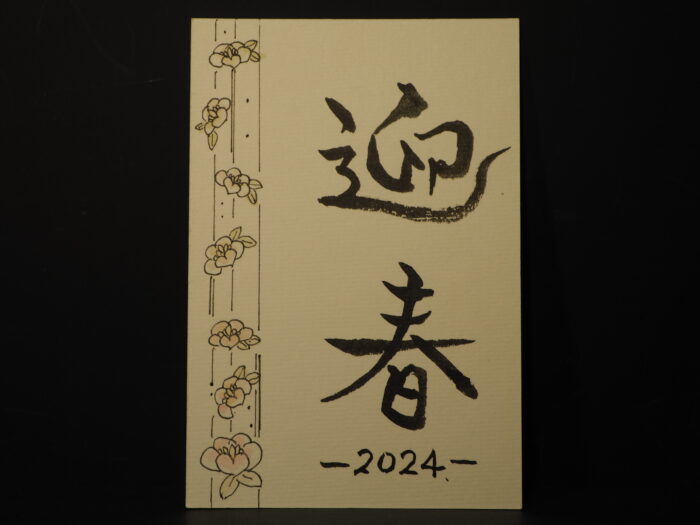 迎春
-2024.-